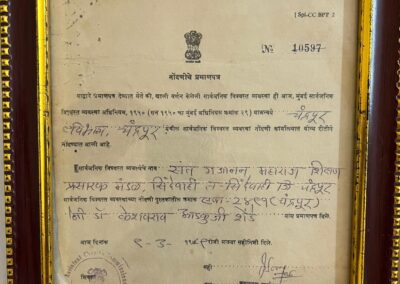 [ Spl-CC.BPT ]
№ 10597
नोंदणीचे प्रमाणपत्र
याद्वारे प्रमाणपत्र देण्यात येते की, खाली वर्णन केलेली सार्वजनिक विश्वस्त व्यवस्था ही आज, मुंबई सार्वजनिक
विश्वस्त व्यवस्था अधिनियम, १९५० (सन १९५० चा मुंबई अधिनियम क्रमांक २९) यान्वये चंद्रपूर
विभाग, चंद्रपूर येथील सार्वजनिक विश्वस्त व्यवस्था नोंदणी कार्यालयात योग्य रीतीने
नोंदण्यात आली आहे.
सार्वजनिक विश्वस्त व्यवस्थेचे नाव संत गजानन महाराज शिक्षण
प्रसारक मंडळ, सिंदेवाही त. सिंदेवाही जि. चंद्रपूर
सार्वजनिक विश्वस्त व्यवस्थांच्या नोंदणी पुस्तकातील क्रमांक (चंद्रपूर)
श्री डॉ केशवराव शेंडे यांस प्रमाणपत्र दिले.
आज दिनांक ९-३- १९ रोजी माझ्या सहीनिशी दिले.
सही
शिक्का